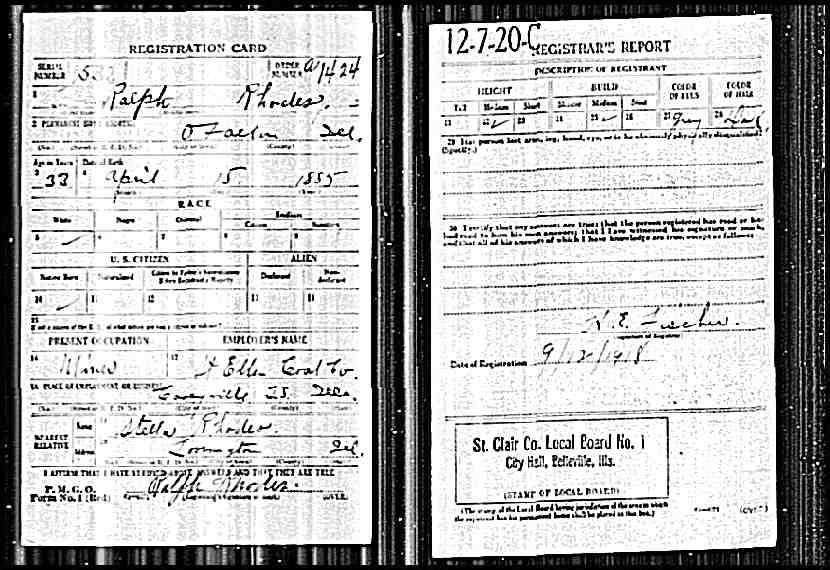 REGISTRATION CARD
SERIAL NUMBER 1532 ORDER NUMBER a1424
1 Ralph Rhodes.
2 PERMANENT HOME ADDRESS
O'Fallon Ill.
Age in Years Date of Birth
3 33 4 April 15 1885
RACE
White Negro Oriental Indian
Citizen Noncitizen
5 ✓ 6 7 8 9
U. S. CITIZEN ALIEN
Native Born Naturalized Citizen by Father's Naturalization Before Registrant's Majority Declarant Non-declarant
10 ✓ 11 12 13 14
15
If not a citizen of the U. S., of what nation are you a citizen or subject?
PRESENT OCCUPATION EMPLOYER'S NAME
16 Miner 17 St Ellen Coal Co.
18 PLACE OF EMPLOYMENT OR BUSINESS
NEAREST RELATIVE
Name 19 Stella Rhodes.
Address 20 Ill.
I AFFIRM THAT I HAVE VERIFIED ABOVE ANSWERS AND THAT THEY ARE TRUE
P. M. G. O.
Form No. 1 (Red) Ralph Rhodes. (OVER)
12-7-20-C
REGISTRAR'S REPORT
DESCRIPTION OF REGISTRANT
HEIGHT BUILD COLOR OF EYES COLOR OF HAIR
Tall Medium Short Slender Medium Stout
21 22 ✓ 23 24 25 ✓ 26 27 Gray 28 Dark
29 Has person lost arm, leg, hand, eye, or is he obviously physically disqualified?
(Specify.)
30 I certify that my answers are true; that the person registered has read or has
had read to him his own answers; that I have witnessed his signature or mark,
and that all of his answers of which I have knowledge are true, except as follows:
H. E.
(Signature of Registrar)
Date of Registration 9/12/1918
St. Clair Co. Local Board No. 1
City Hall, Belleville, Ills.
(STAMP OF LOCAL BOARD)
(The stamp of the Local Board having jurisdiction of the area in which
the registrant has his permanent home shall be placed in this box.)
(OVER)